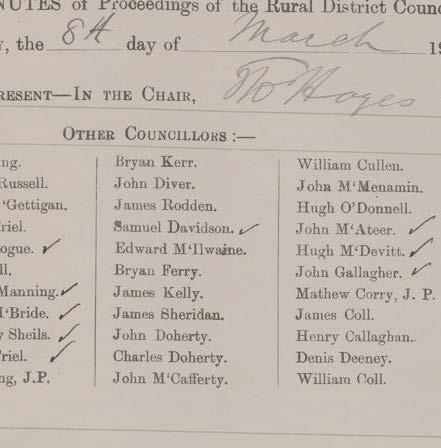 NUTES of Proceedings of the Rural District Counc
y, the 8th day of March 19
RESENT—IN THE CHAIR, Hayes
OTHER COUNCILLORS :—
ng.
Russell.
'Gettigan.
riel.
ogue. ✓
ll.
Manning. ✓
M'Bride. ✓
y Sheils. ✓
riel. ✓
ng, J.P.
Bryan Kerr.
John Diver.
James Rodden.
Samuel Davidson. ✓
Edward M'Ilwaine.
Bryan Ferry.
James Kelly.
James Sheridan.
John Doherty.
Charles Doherty.
John M'Cafferty.
William Cullen.
John M'Menamin.
Hugh O'Donnell.
John M'Ateer. ✓
Hugh M'Devitt. ✓
John Gallagher. ✓
Mathew Corry, J. P.
James Coll.
Henry Callaghan.
Denis Deeney.
William Coll.